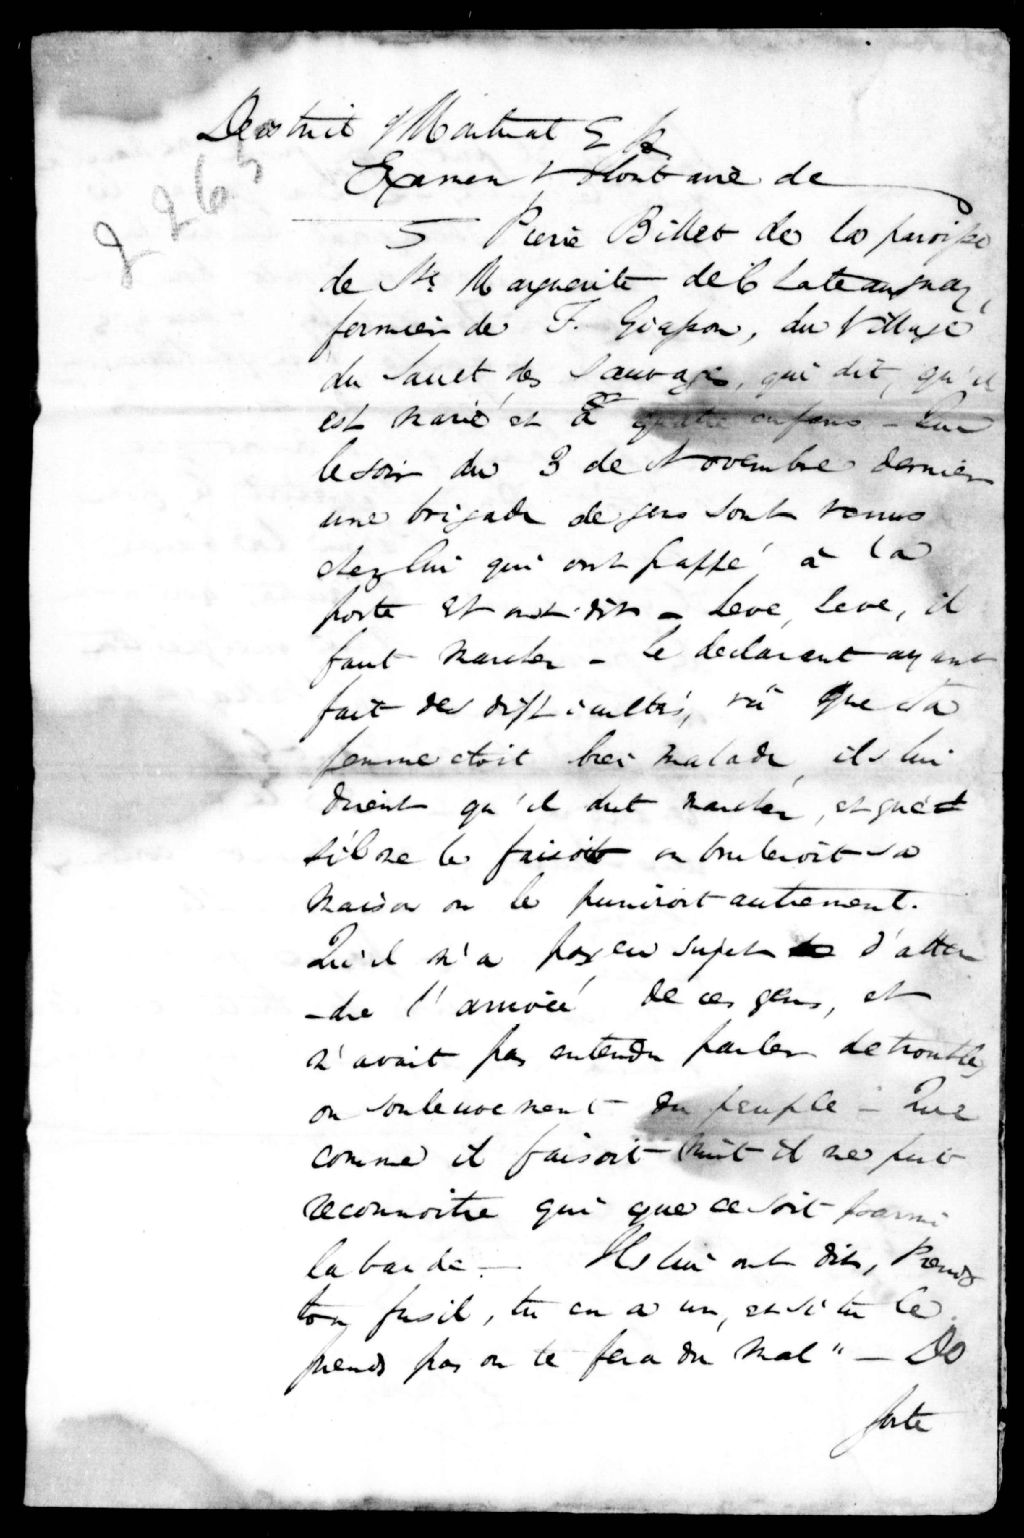 District of Montreal
2265
Examen Volontaire de
Pierre Billet de la paroisse
de Ste Marguerite de Chateaugay,
fermier de F. Giasson, du Village
du Sault des Sauvages, qui dit, qu'il
est marié et a quatre enfans - Que
le soir du 3 de Novembre dernier
une brigade de gens sont venus
chez lui qui ont frappé à la
porte et ont dit - Leve, Leve, il
faut marcher - Le declarant ayant
fait des difficultés, vû que sa
femme etoit bien malade, ils lui
dirent qu'il dut marcher, et que
s'il ne le faisoit on bruleroit sa
maison ou le puniroit autrement.
Qu'il n'a pas eu sujet d'atten
-dre l'arrivée de ces gens, et
n'avait pas entendu parler de troubles
ou soulevement du peuple - Que
comme il faisoit nuit il ne put
reconnoitre qui que ce soit parmi
la bande - Ils lui ont dit, Prends
ton fusil, tu en a un, et si tu le
prends pas on te fera du mal" - De
sorte